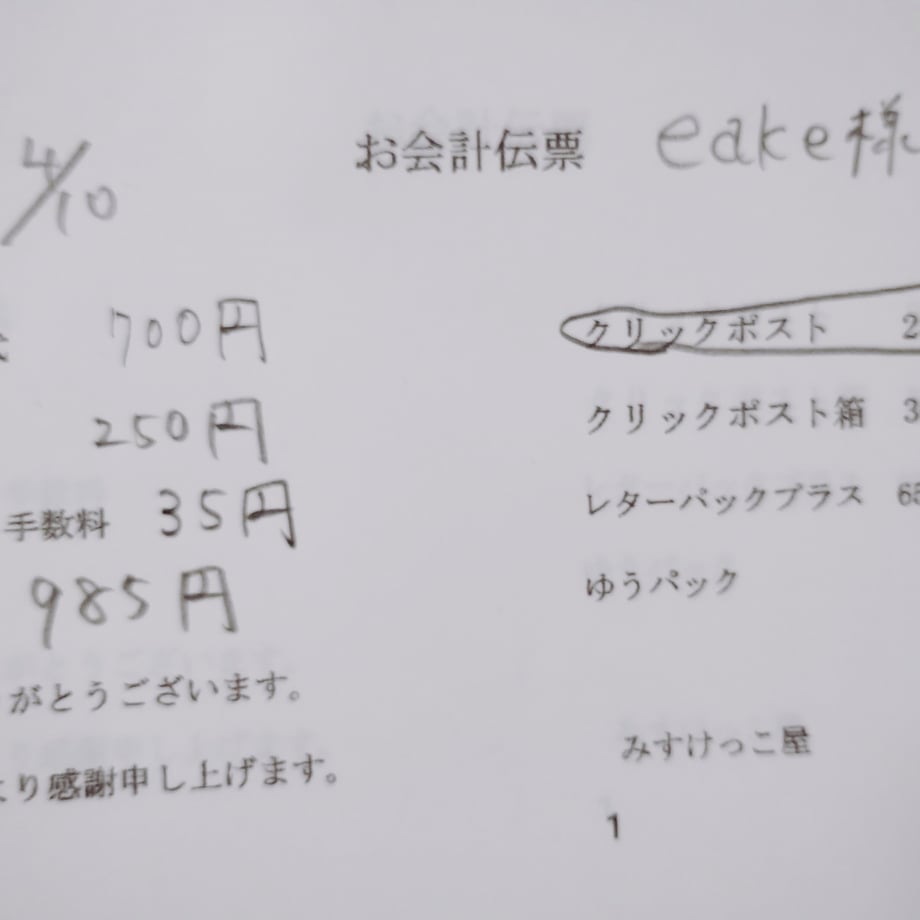 4/10
お会計伝票 eake様
700円
250円
手数料 35円
985円
がとうございます。
より感謝申し上げます。
クリックポスト 2
クリックポスト箱 3
レターパックプラス 65
ゆうパック
みすけっこ屋
1